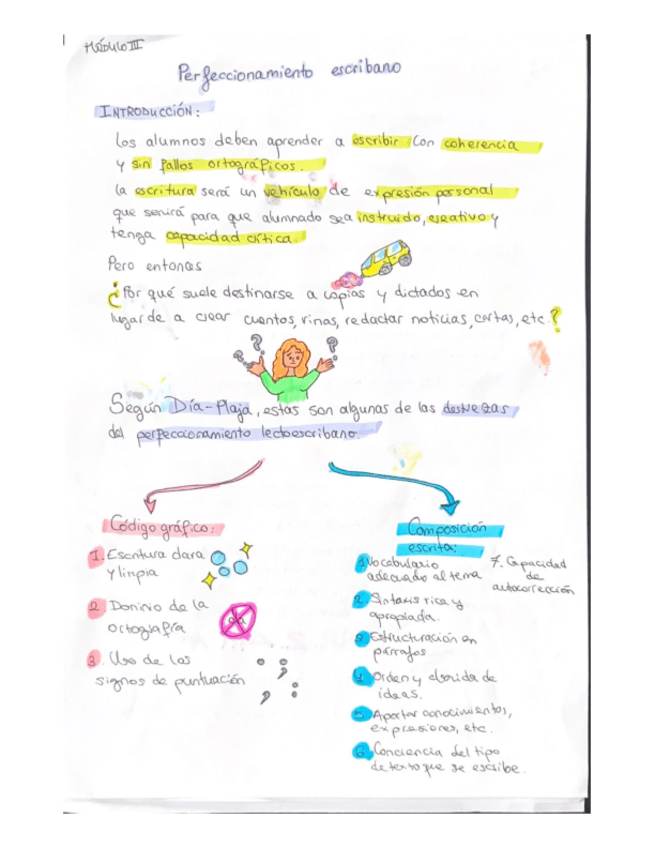 MÓDULO III
Perfeccionamiento escribano
INTRODUCCIÓN:
Los alumnos deben aprender a escribir con coherencia
y sin fallos ortográficos.
La escritura será un vehículo de expresión personal
que servirá para que alumnado sea instruido, creativo y
tenga capacidad crítica.
Pero entonces
¿Por qué suele destinarse a copias y dictados en
lugar de a crear cuentos, rimas, redactar noticias, cartas, etc.?
? ? ?
Según Día-Plaja, estas son algunas de las destrezas
del perfeccionamiento lectoescribano.
Código gráfico:
1. Escritura clara
y limpia
2. Dominio de la
ortografía
3. Uso de los
signos de puntuación
Composición
escrita:
1. Vocabulario
adecuado al tema
2. Sintaxis rica y
apropiada.
3. Estructuración en
párrafos
4. Orden y claridad de
ideas.
5. Aportar conocimientos,
expresiones, etc.
6. Conciencia del tipo
de texto que se escribe.
7. Capacidad
de
autocorrección